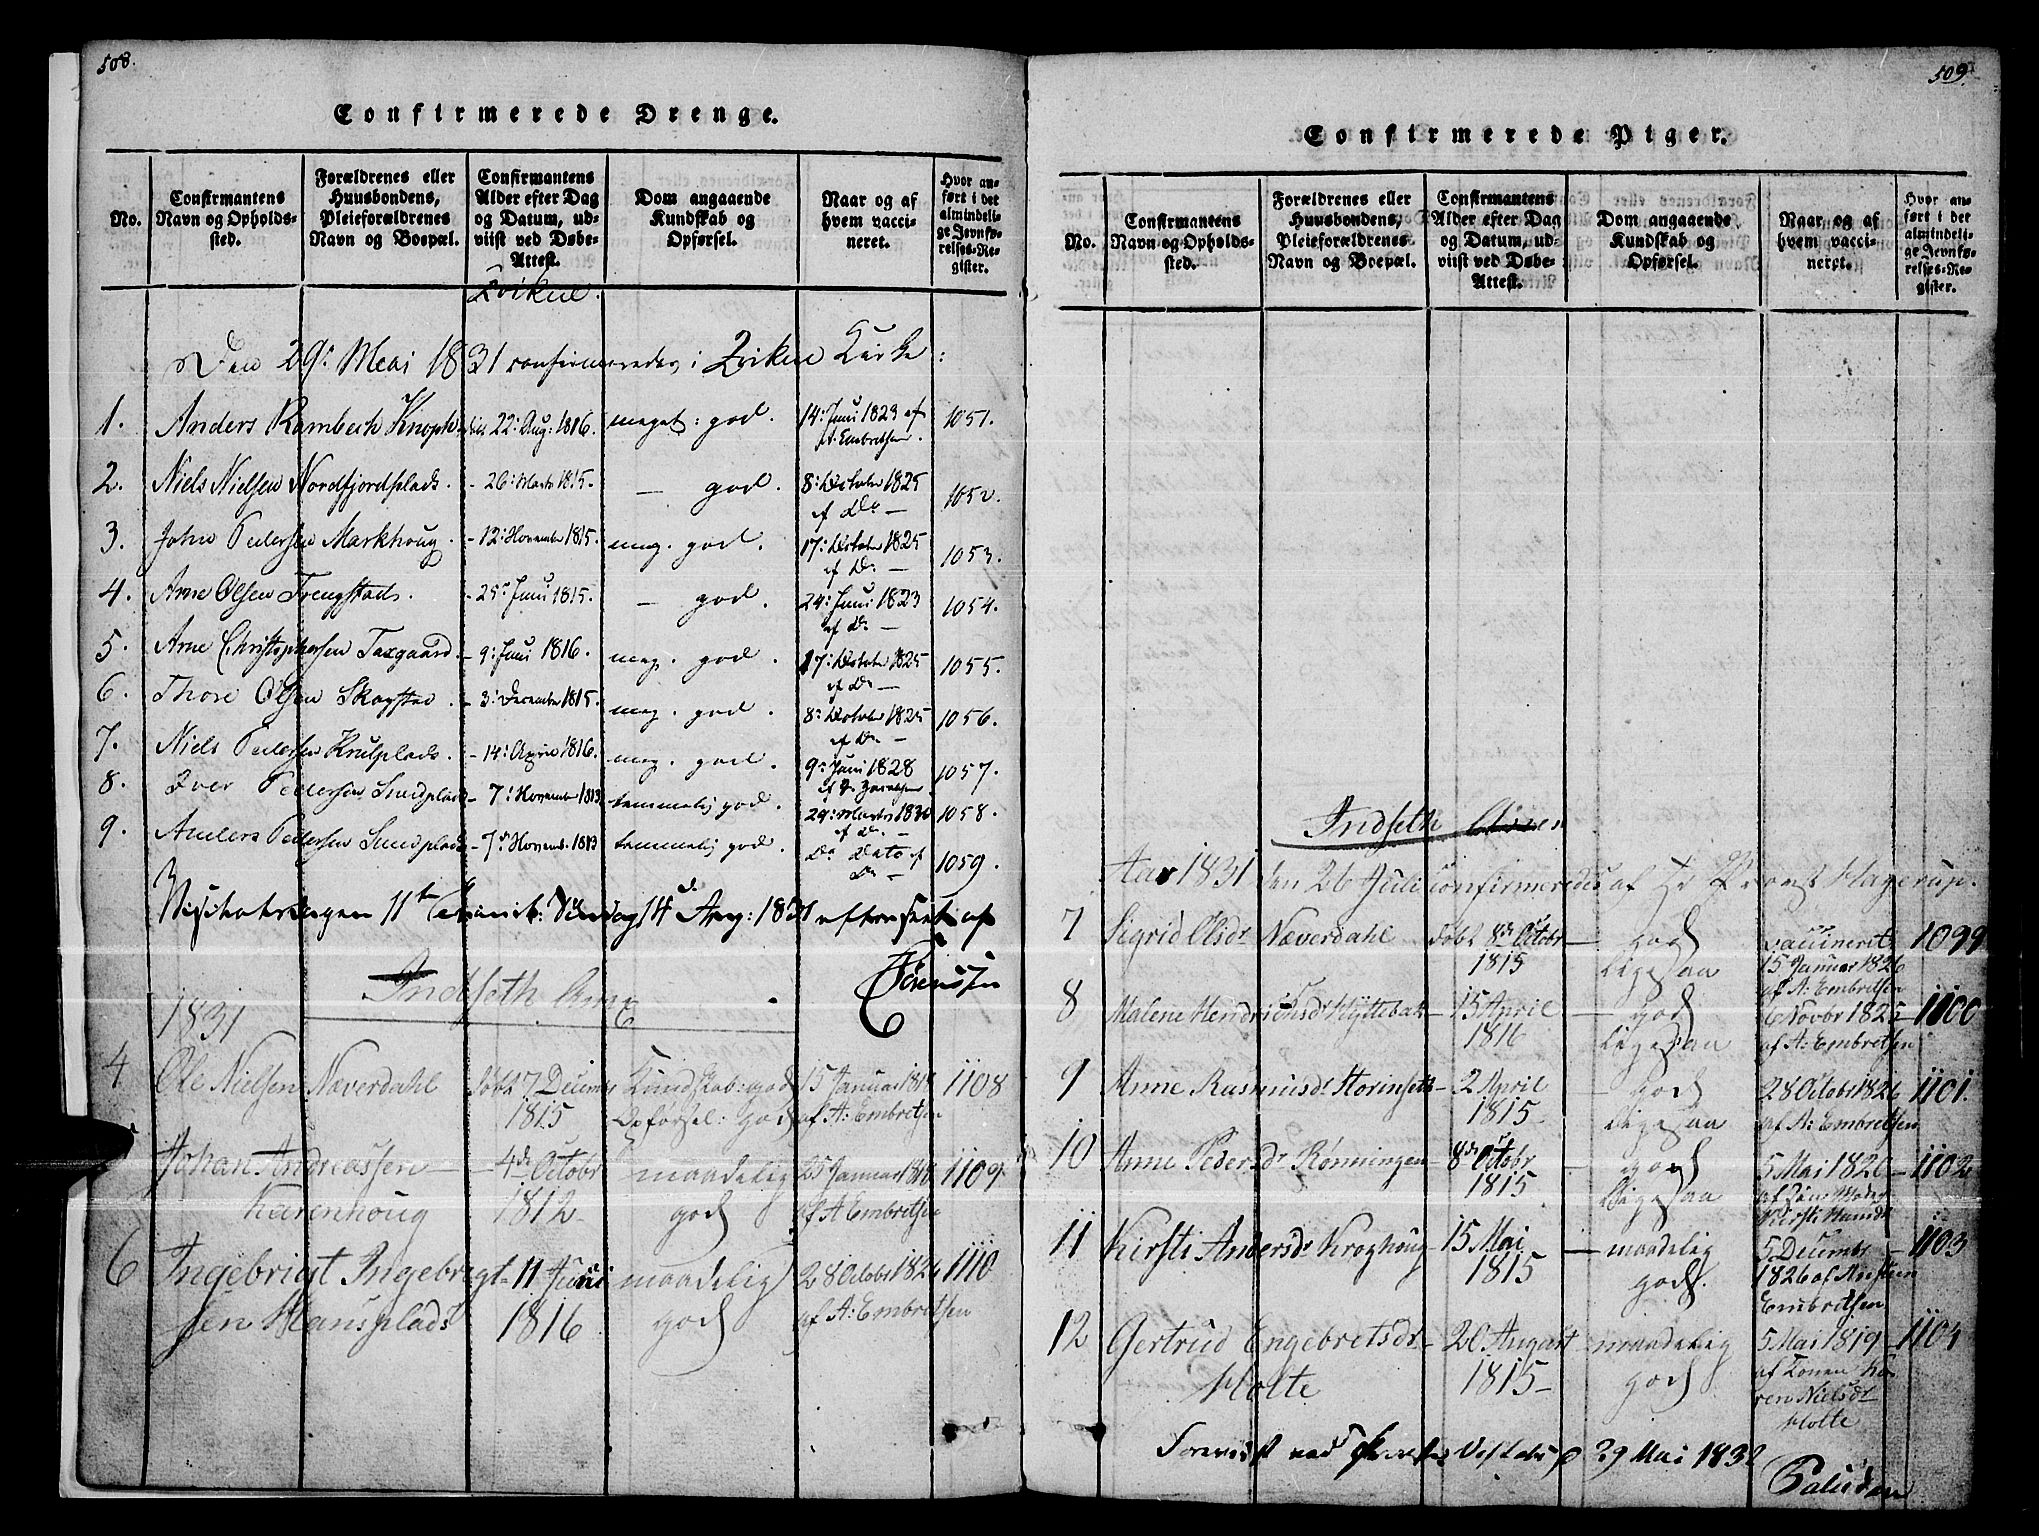 508.
Confirmerede Drenge.
No.
Confirmantens Navn og Opholds-sted.
Forældrenes eller Huusbondens, Pleieforældrenes Navn og Boepæl.
Confirmantens Alder efter Dag og Datum, ud-viist ved Døbe-Attest.
Dom angaaende Kundskab og Opførsel.
Naar og af hvem vacci-neret.
Hvor an-ført i det almindeli-ge Jevnfø-relses-Re-gister.
Den 29: Mai 1831 confirmeredes i Kirke:
1. Anders Rambech Knoph 22: Aug: 1816. meget: god. 14: Juni 1823 af A. Embretsen. 1051.
2. Niels Nielsen Nordfjordplads. - 26: Marts 1815. — god. 8: October 1825 af Do — 1052.
3. John Pedersen Markhoug. - 12: November 1815. meg. god. 17: October 1825 af Do — 1053.
4. Arne Olsen - 25: Juni 1815. — god. 24: Juni 1823 af Do — 1054.
5. Arne Christophersen - 9: Juni 1816. meg. god. 17: October 1825 af Do — 1055.
6. Thore Olsen - 3: December 1815. meg. god. 8: October 1825 af Do — 1056.
7. Niels Pedersen - 14: April 1816. meg. god. 9: Juni 1828 1057.
8. Iver Pedersen - 7: November 1813 temmelig god. 29: Marts 1830 af Do — 1058.
9. Anders Pedersen - 7: Novemb. 1813 temmelig god. Do Dato af Do — 1059.
11te Trinit: Søndag 14d Aug: 1831 efterseet af
Sørenssen
Indseth
1831
4 Ole Nielsen Næverdahl døbt 17 Decembr 1815 Kundskab: god Opførsel: god 15 Januar 1818 af A: Embretsen 1108
Johan Andreassen Karenhoug — 4de Octobr 1812 maadelig god 25 Januar 1818 af A Embretsen 1109
6 Ingebrigt Ingebrigt-sen Hansplads 11 Juni 1816 maadelig god 28 Octobr 1826 af A: Embretsen 1110
509.
Confirmerede Piger.
No.
Confirmantens Navn og Opholds-sted.
Forældrenes eller Huusbondens, Pleieforældrenes Navn og Boepæl.
Confirmantens Alder efter Dag og Datum, ud-viist ved Døbe-Attest.
Dom angaaende Kundskab og Opførsel.
Naar og af hvem vacci-neret.
Hvor an-ført i det almindeli-ge Jevnfø-relses-Re-gister.
Indseth
Aar 1831 den 26 Juli confirmeredes af Hr Provst Hagerup.
7 Sigrid Olsdr Næverdahl døbt 8de Octobr 1815 — god ligesaa vaccineret 15 Januar 1826 af A: Embretsen 1099
8 Malene Hendrichsdr Hyttebak — 15 April 1816 — god ligesaa 6 Novbr 1825 af A: Embretsen 1100
9 Anne Rasmusdr Storinseth — 2 April 1815 — god ligesaa 28 Octobr 1826 af A: Embretsen 1101.
10 Anne Pedersdr Rønningen — 8de Octobr 1815 — god ligesaa 5 Mai 1820 af 1102
11 Kirsti Andersdr Kroghoug — 15 Mai 1815 — maadelig god. 5 Decembr 1826 af Embretsen 1103
12 Gertrud Engebretsdr Holte — 20 August 1815 — maadelig god 5 Mai 1819 af Konen Ka-ren Nielsdr Holte 1104
Foreviist ved 29 Mai 1832
Paludan